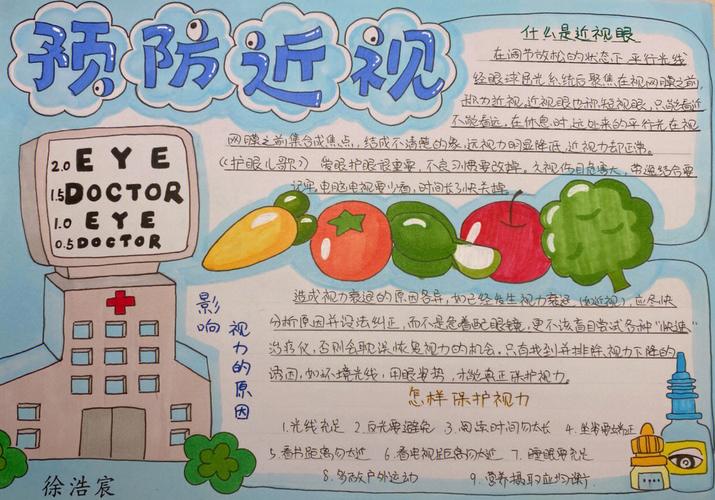 预防近视
什么是近视眼
在调节放松的状态下,平行光线
经眼球屈光系统后聚焦在视网膜之前,
称为近视,近视眼也称短视眼,只能看近
不能看远,在休息时,远处来的平行光在视
网膜之前集合成焦点,结成不清楚的象,远视力明显降低,近视力却正常。
《护眼儿歌》爱眼护眼很重要,不良习惯要改掉。久视伤目危害大,劳逸结合要
记牢,电脑电视要少看,时间长了快关掉。
2.0 EYE
1.5 DOCTOR
1.0 EYE
0.5 DOCTOR
影响
视力的原因
造成视力衰退的原因各异,如已经发生视力衰退(如近视),应尽快
分析原因并设法纠正,而不是急着配眼镜,更不该盲目尝试各种“快速”
治疗仪,否则会耽误恢复视力的机会。只有找到并排除视力下降的
诱因,如环境光线,用眼姿势,才能真正保护视力。
怎样保护视力
1.光线充足 2.反光要避免 3.阅读时间勿太长 4.坐姿要端正
5.看书距离勿太近 6.看电视距离勿太近 7.睡眠要充足
8.多做户外运动 9.营养摄取应均衡
徐浩宸